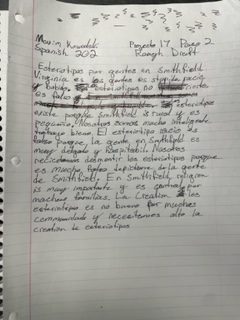 Maxim Kowalski Proyecto IV Paso 2
Spanish 202 Rough Draft
Esteriotipos por gentes en Smithfield
Virginia es las gentes es stupido, sucio
y bobas. esteriotipos no
es falso
esteriotipos
existe porque Smithfield es rural y es
pequeña. Nosotros somos mucho inteligente
trabajo bien. El esteriotipo sucio es
falso porque la gente en Smithfield es
muy delgado y Respitabil. Nosotros
necicitamos desmentir los esteriotipos porque
es mucho falso depictions de la gente
de Smithfield. En Smithfield, religion
is muy importante y es por
muchas familias. La Creation de los
esteriotipos es no bueno por muchas
communidads y necesitemos alto la
creation de esteriotipos